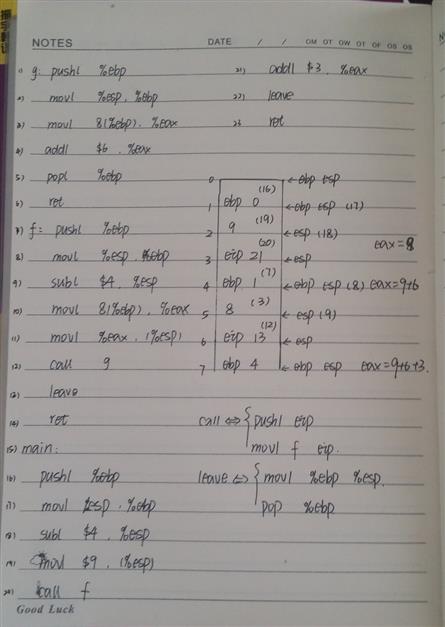 NOTES DATE / / OM OT OW OT OF OS OS
1) g: pushl %ebp
2) movl %esp, %ebp
3) movl 8(%ebp), %eax
4) addl $6, %eax
5) popl %ebp
6) ret
7) f: pushl %ebp
8) movl %esp, %ebp
9) subl $4, %esp
10) movl 8(%ebp), %eax
11) movl %eax, (%esp)
12) call g
13) leave
14) ret
15) main:
16) pushl %ebp
17) movl %esp, %ebp
18) subl $4, %esp
19) movl $9, (%esp)
20) call f
21) addl $3, %eax
22) leave
23 ret
0 ← ebp esp
(16)
1 ebp 0 ← ebp esp (17)
(19)
2 9 ← esp (18)
(20) eax = 8
3 eip 21 ← esp
(7)
4 ebp 1 ← ebp esp (8) eax = 9+6
(3)
5 8 ← esp (9)
(12)
6 eip 13 ← esp
7 ebp 4 ← ebp esp eax = 9+6+3.
call ⇔ { pushl eip
movl f eip.
leave ⇔ { movl %ebp %esp.
pop %ebp
Good Luck